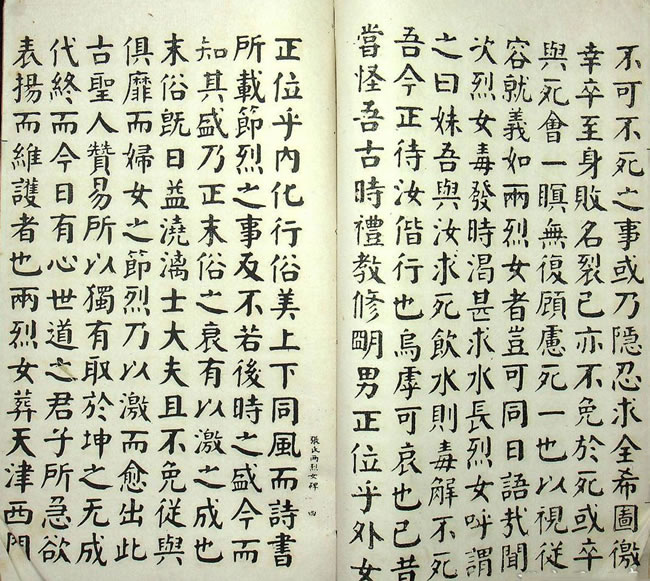 不可不死之事或乃隱忍求全希圖徼
幸卒至身敗名裂已亦不免於死或卒
與死會一瞑無復顧慮死一也以視從
容就義如兩烈女者豈可同日語㦲聞
次烈女毒發時渴甚求水長烈女呼謂
之曰妹吾與汝求死飲水則毒解不死
吾今正待汝偕行也烏虖可哀也已昔
當怪吾古時禮教修朙男正位乎外女
張氏兩烈女碑 四
正位乎內化行俗美上下同風而詩書
所載節烈之事反不若後時之盛今而
知其盛乃正末俗之衰有以激之成也
末俗旣日益澆漓士大夫且不免從與
俱靡而婦女之節烈乃以激而愈出此
古聖人贊易所以獨有取於坤之无成
代終而今日有心世道之君子所急欲
表揚而維護者也兩烈女葬天津西門